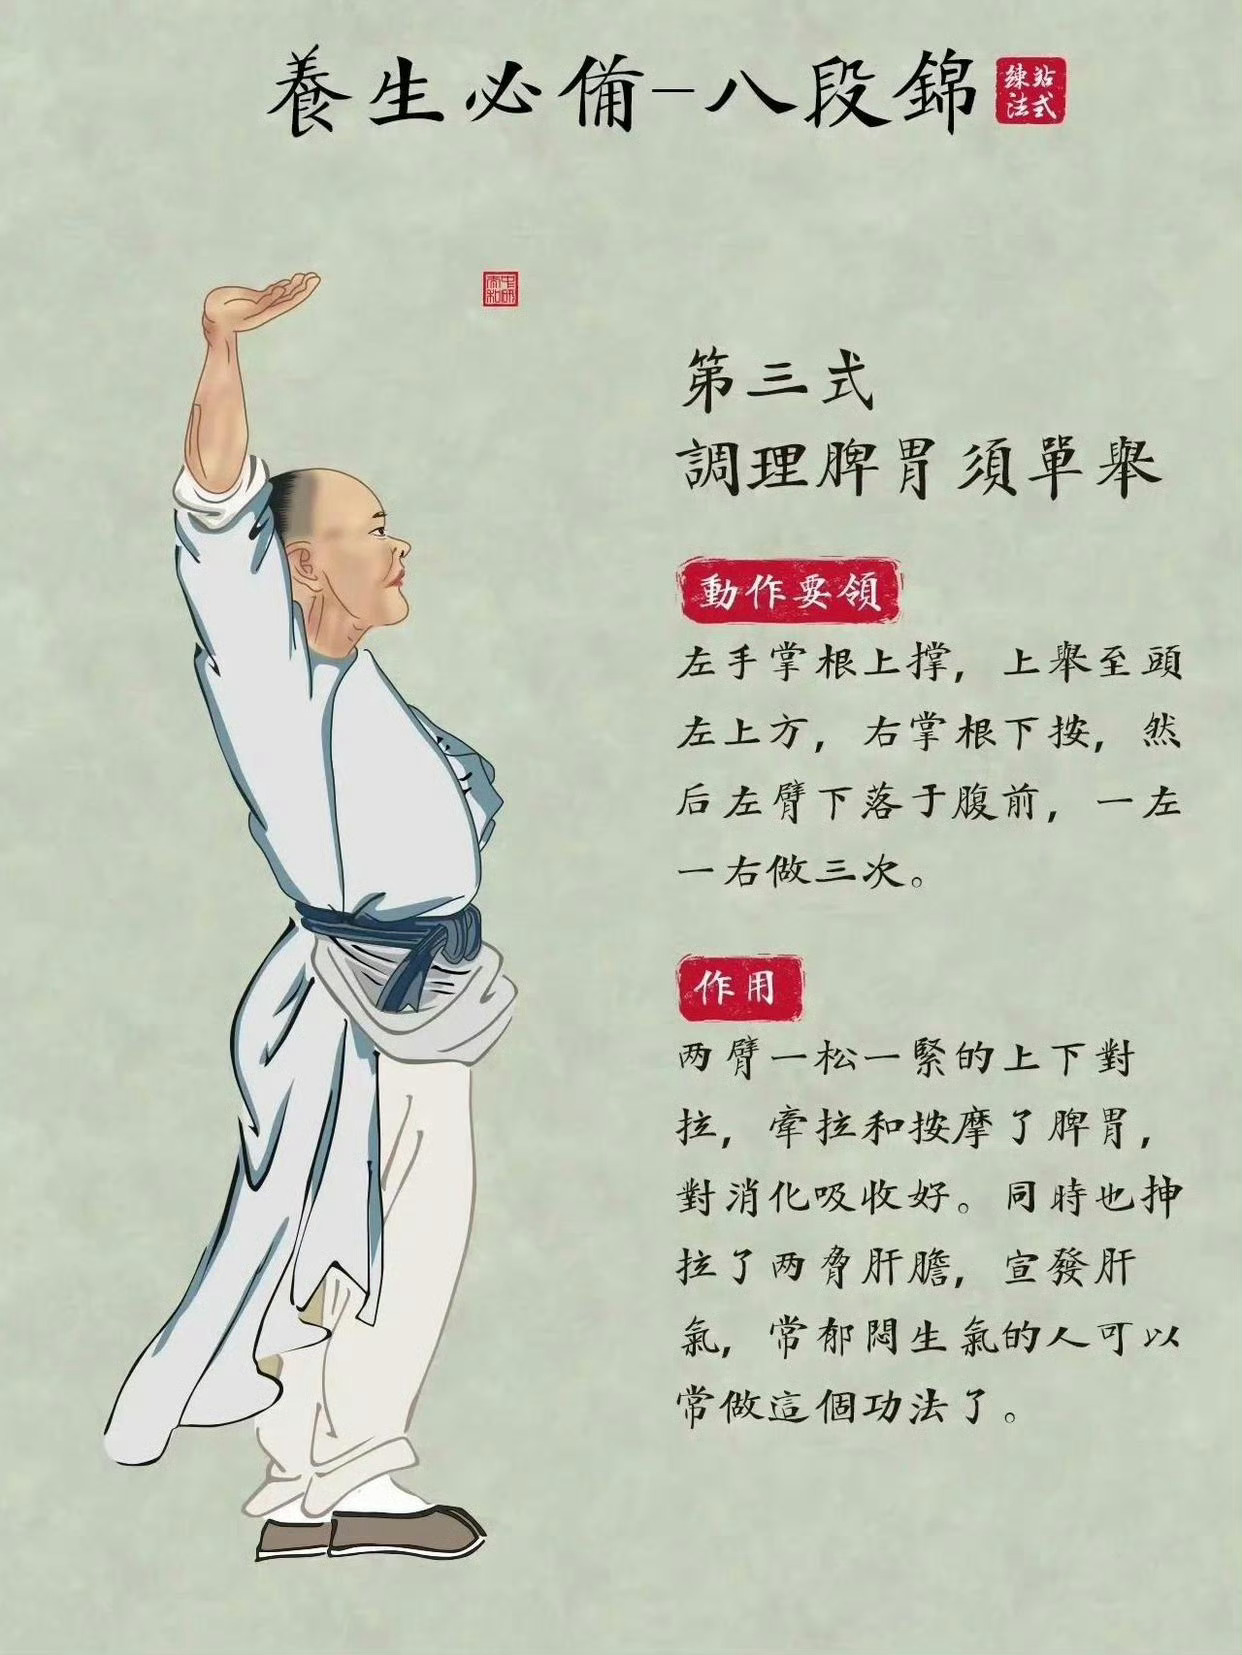 養生必備-八段錦
站式
練法
第三式
調理脾胃須單舉
動作要領
左手掌根上撑，上舉至頭
左上方，右掌根下按，然
后左臂下落于腹前，一左
一右做三次。
作用
两臂一松一緊的上下對
拉，牽拉和按摩了脾胃，
對消化吸收好。同時也抻
拉了两脅肝膽，宣發肝
氣，常郁悶生氣的人可以
常做這個功法了。